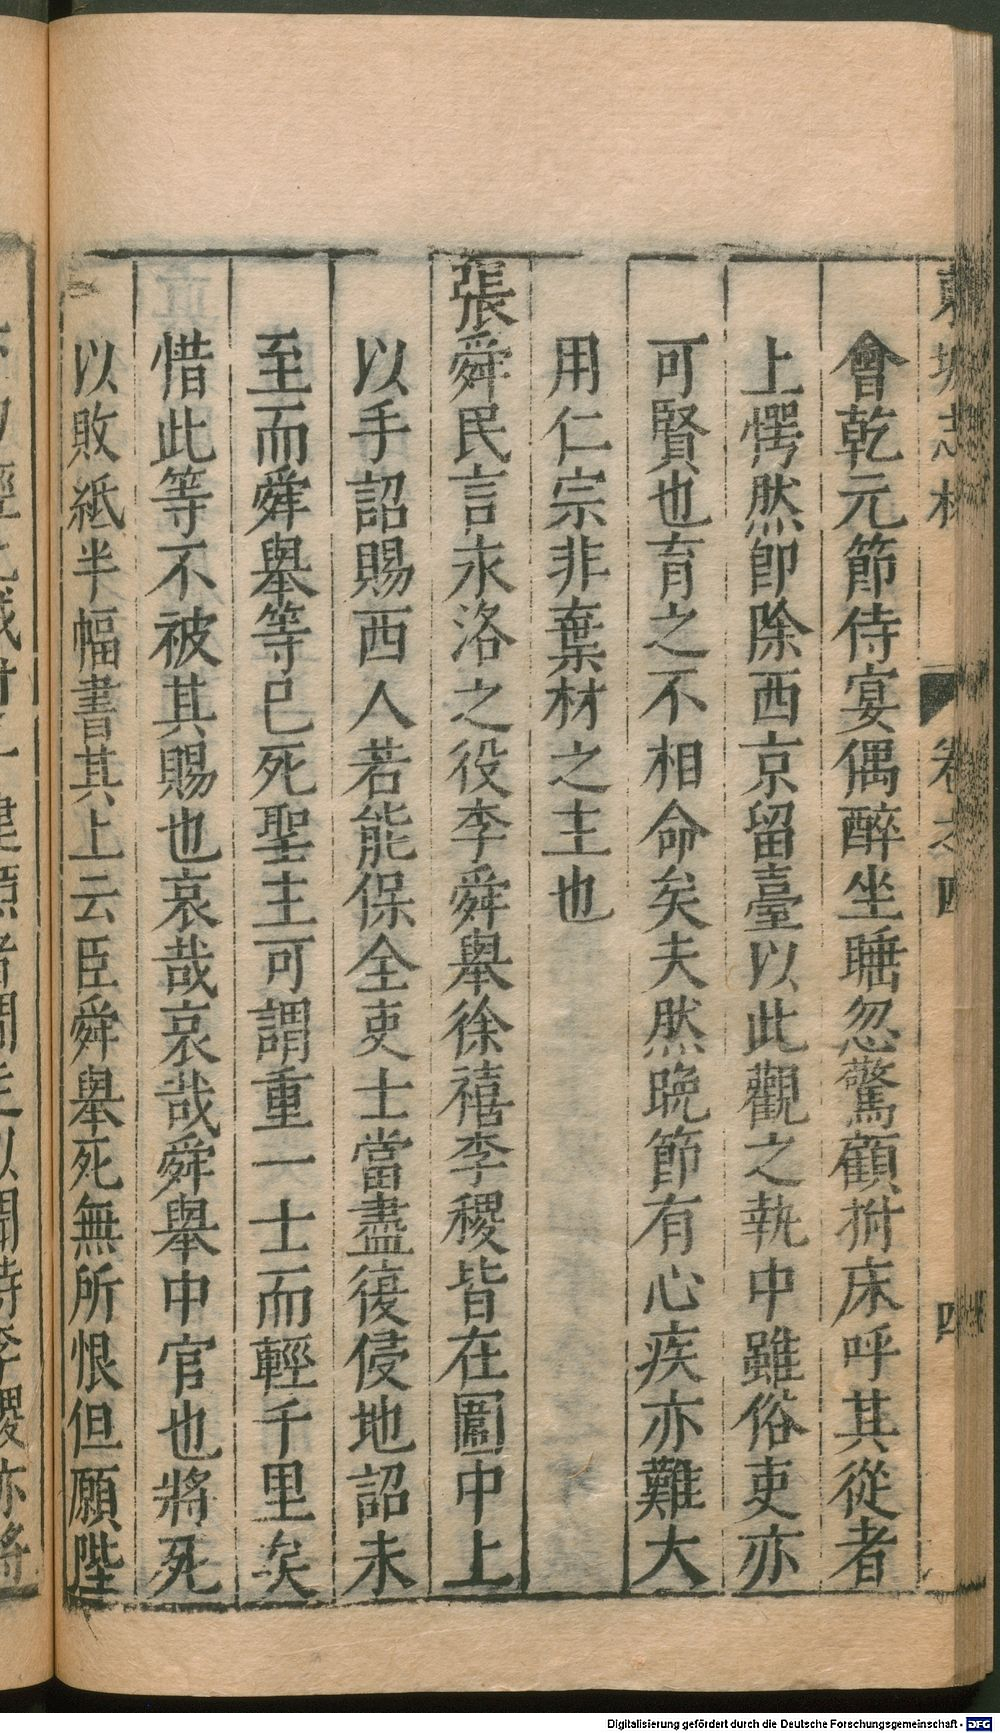 東坡志林 卷之四 四
會乾元節侍宴偶醉坐睡忽驚顧拊床呼其從者
上愕然即除西京留臺以此觀之執中雖俗吏亦
可賢也育之不相命矣夫然晚節有心疾亦難大
用仁宗非棄材之主也
張舜民言永洛之役李舜舉徐禧李稷皆在圍中上
以手詔賜西人若能保全吏士當盡復侵地詔未
至而舜舉等已死聖主可謂重一士而輕千里矣
惜此等不被其賜也哀哉哀哉舜舉中官也將死
以敗紙半幅書其上云臣舜舉死無所恨但願陛
Digitalisierung gefördert durch die Deutsche Forschungsgemeinschaft - DFG